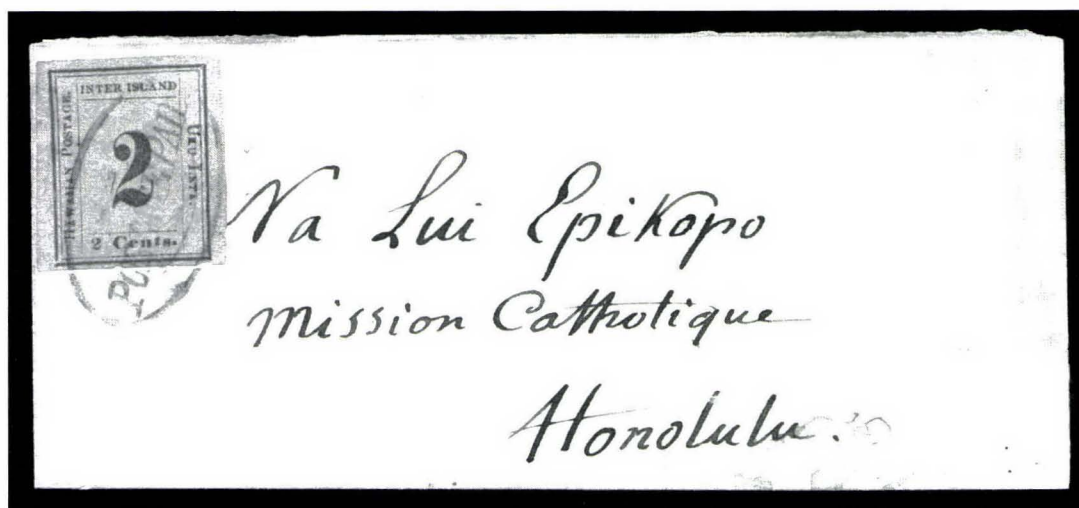 INTER ISLAND
HAWAIIAN POSTAGE.
UKU LETA.
2
2 Cents.
Na Lui Epikopo
Mission Catholique
Honolulu.